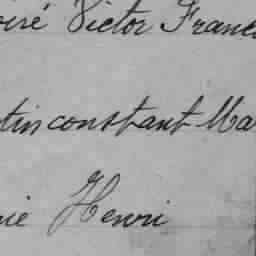 oiré Victor Franc
tin constant Ma
ie Henri